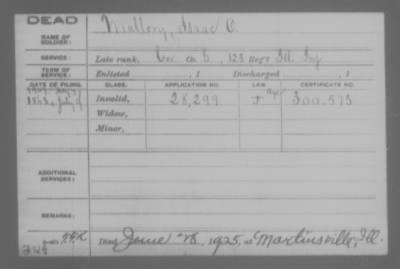 DEAD
NAME OF SOLDIER: Mallory, Isaac O.
SERVICE: Late rank, Co. B, 123 Reg't Ill. Inf
TERM OF SERVICE: Enlisted , 1 Discharged , 1
DATE OF FILING. CLASS. APPLICATION NO. LAW. CERTIFICATE NO.
1863, July Invalid, 28,299 300.573
Widow,
Minor,
ADDITIONAL SERVICES:
REMARKS:
Died June 28, 1925, at Martinsville, Ill.